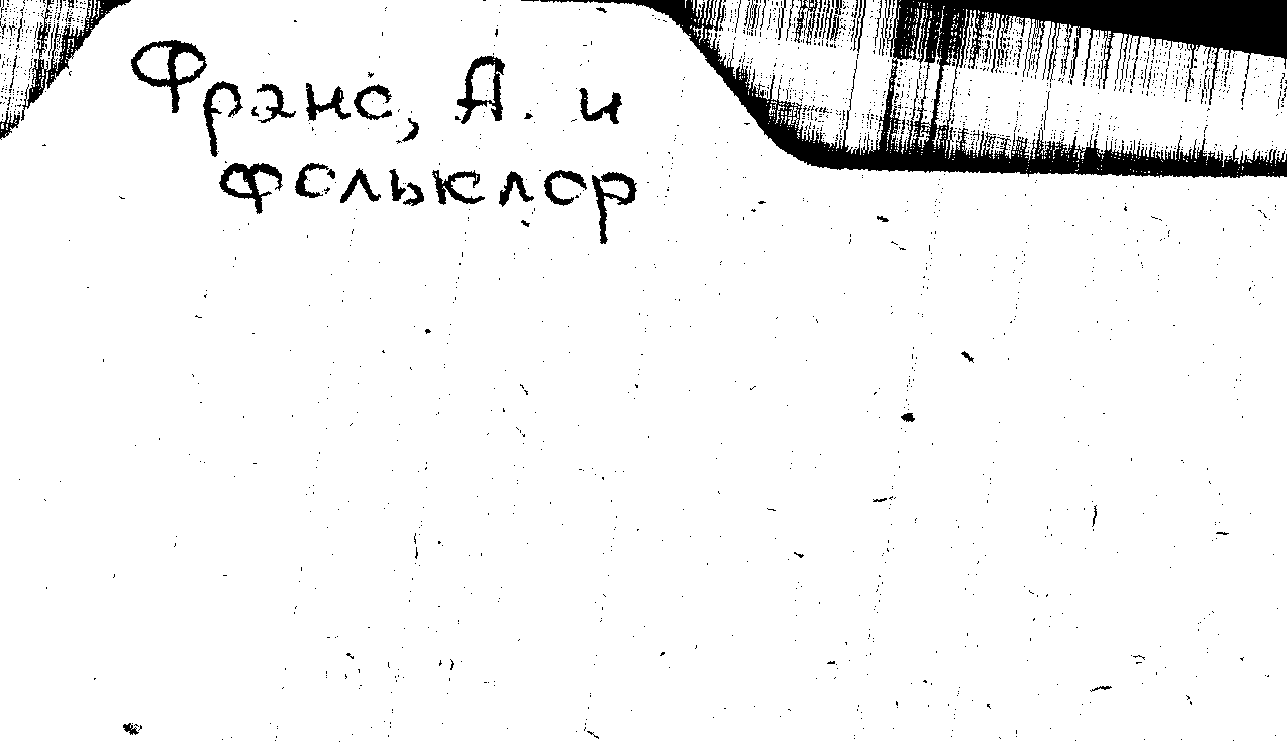 Франс, А. и
фольклор